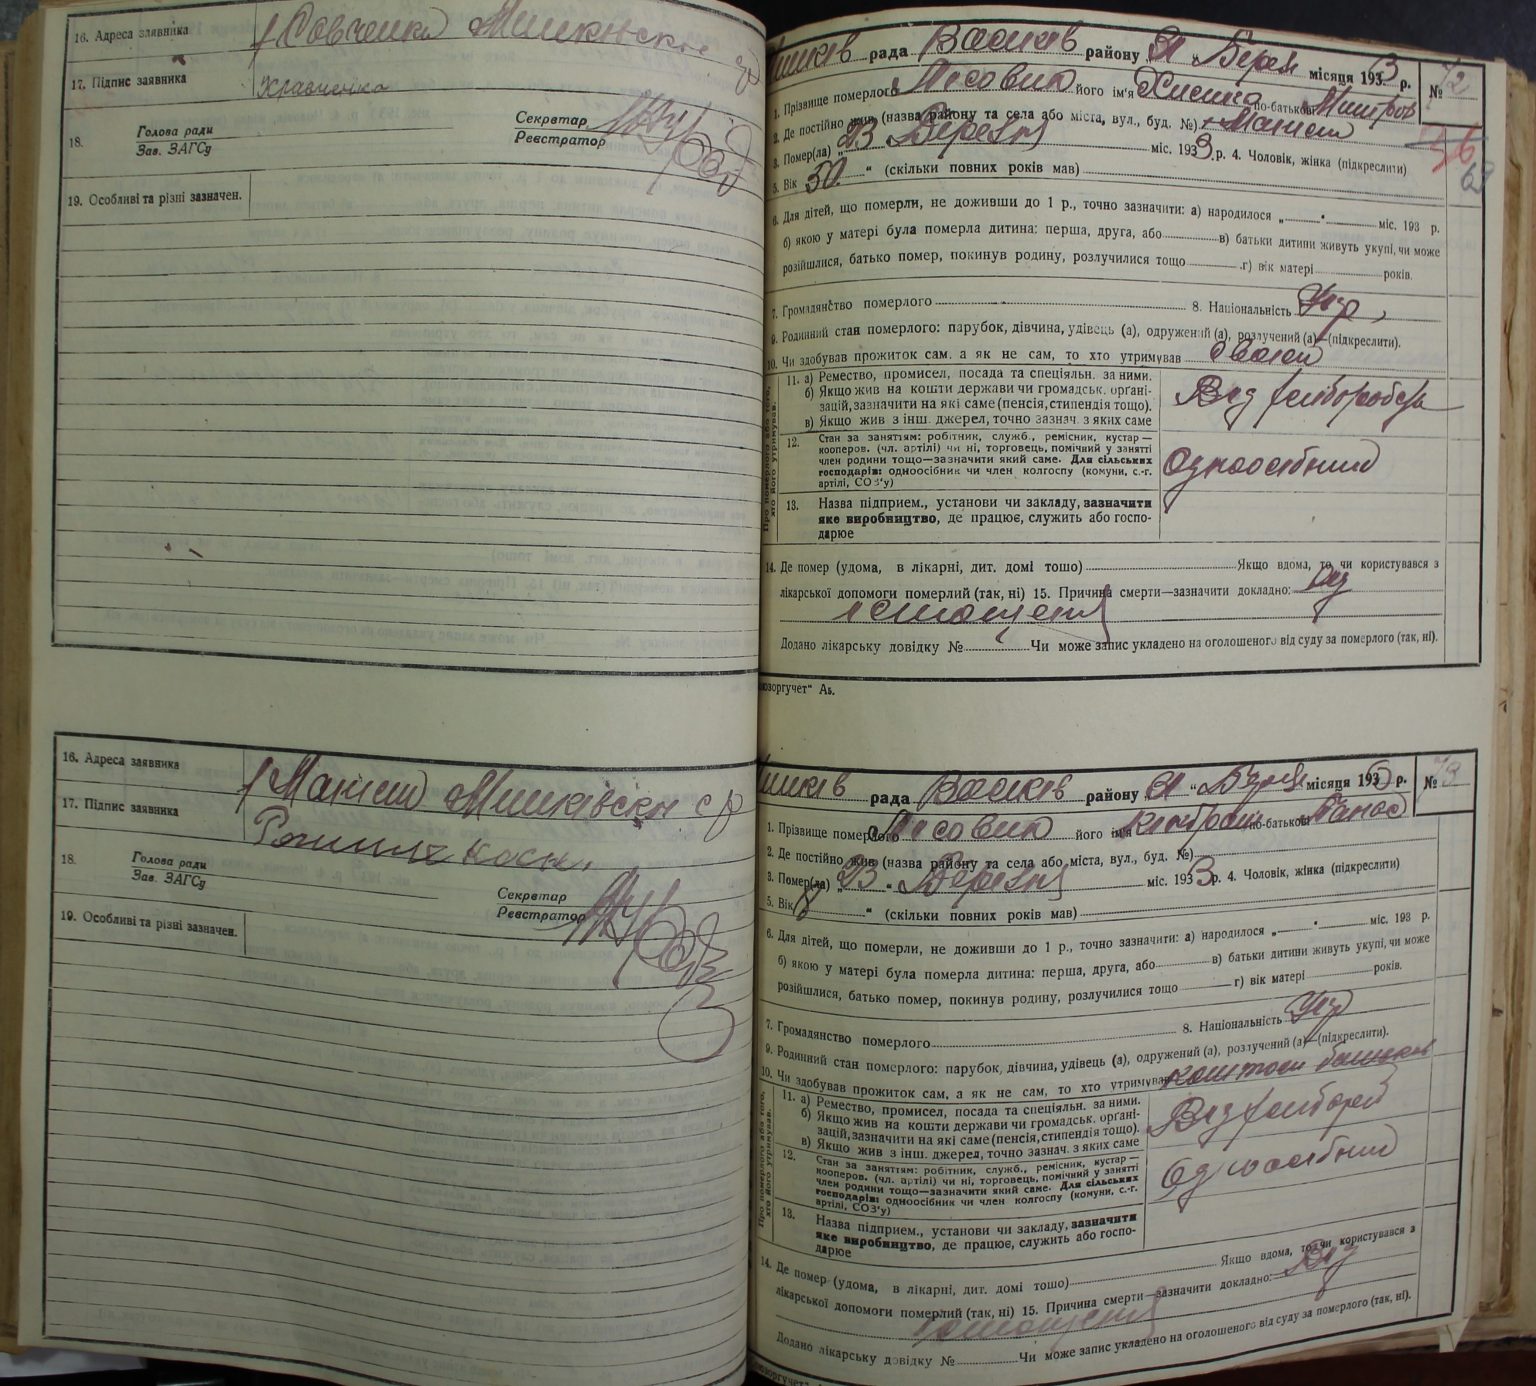 16. Адреса заявника
17. Підпис заявника
18. Голова ради
Зав. ЗАГСу
Секретар
Реєстратор
19. Особливі та різні зазначен.
рада Васильків району 31 Берез місяця 1933 р. №72
1. Прізвище померлого Лісовик його ім'я по-батькові
2. Де постійно жив (назва району та села або міста, вул., буд. №)
3. Помер(ла) „ 23 Березня міс. 1933 р. 4. Чоловік, жінка (підкреслити)
5. Вік 50 “ (скільки повних років мав)
6. Для дітей, що померли, не доживши до 1 р., точно зазначити: а) народилося „ “ міс. 193 р.
б) якою у матері була померла дитина: перша, друга, або в) батьки дитини живуть укупі, чи може
розійшлися, батько помер, покинув родину, розлучилися тощо г) вік матері років.
7. Громадянство померлого 8. Національність Укр,
9. Родинний стан померлого: парубок, дівчина, удівець (а), одружений (а), розлучений (а)—(підкреслити).
10. Чи здобував прожиток сам, а як не сам, то хто утримував
Про померлого або того, хто його утримував.
11. а) Ремество, промисел, посада та спеціяльн. за ними.
б) Якщо жив на кошти держави чи громадськ. органі-
зацій, зазначити на які саме (пенсія, стипендія тощо).
в) Якщо жив з інш. джерел, точно зазнач. з яких саме
Від хліборобства
12. Стан за заняттям: робітник, служб., ремісник, кустар—
кооперов. (чл. артілі) чи ні, торговець, помічний у занятті
член родини тощо—зазначити який саме. Для сільських
господарів: одноосібник чи член колгоспу (комуни, с.-г.
артілі, СОЗ'у)
Одноосібний
13. Назва підприєм., установи чи закладу, зазначити
яке виробництво, де працює, служить або госпо-
дарює
14. Де помер (удома, в лікарні, дит. домі тощо) Якщо вдома, то чи користувався з
лікарської допомоги померлий (так, ні) 15. Причина смерти—зазначити докладно: Від
істощення
Додано лікарську довідку № Чи може запис укладено на оголошеного від суду за померлого (так, ні).
16. Адреса заявника
17. Підпис заявника
18. Голова ради
Зав. ЗАГСу
Секретар
Реєстратор
19. Особливі та різні зазначен.
рада Васильків району 31 місяця 193 р. №73
1. Прізвище померлого Лісовик його ім'я по-батькові Панас
2. Де постійно жив (назва району та села або міста, вул., буд. №)
3. Помер(ла) „ 23 “ Березня міс. 1933 р. 4. Чоловік, жінка (підкреслити)
5. Вік 8 “ (скільки повних років мав)
6. Для дітей, що померли, не доживши до 1 р., точно зазначити: а) народилося „ “ міс. 193 р.
б) якою у матері була померла дитина: перша, друга, або в) батьки дитини живуть укупі, чи може
розійшлися, батько помер, покинув родину, розлучилися тощо г) вік матері років.
7. Громадянство померлого 8. Національність Укр
9. Родинний стан померлого: парубок, дівчина, удівець (а), одружений (а), розлучений (а)—(підкреслити).
10. Чи здобував прожиток сам, а як не сам, то хто утримував коштом батьків
Про померлого або того, хто його утримував.
11. а) Ремество, промисел, посада та спеціяльн. за ними.
б) Якщо жив на кошти держави чи громадськ. органі-
зацій, зазначити на які саме (пенсія, стипендія тощо).
в) Якщо жив з інш. джерел, точно зазнач. з яких саме
Від
12. Стан за заняттям: робітник, служб., ремісник, кустар—
кооперов. (чл. артілі) чи ні, торговець, помічний у занятті
член родини тощо—зазначити який саме. Для сільських
господарів: одноосібник чи член колгоспу (комуни, с.-г.
артілі, СОЗ'у)
Одноосібний
13. Назва підприєм., установи чи закладу, зазначити
яке виробництво, де працює, служить або госпо-
дарює
14. Де помер (удома, в лікарні, дит. домі тощо) Якщо вдома, то чи користувався з
лікарської допомоги померлий (так, ні) 15. Причина смерти—зазначити докладно: Від
істощення
Додано лікарську довідку № Чи може запис укладено на оголошеного від суду за померлого (так, ні).